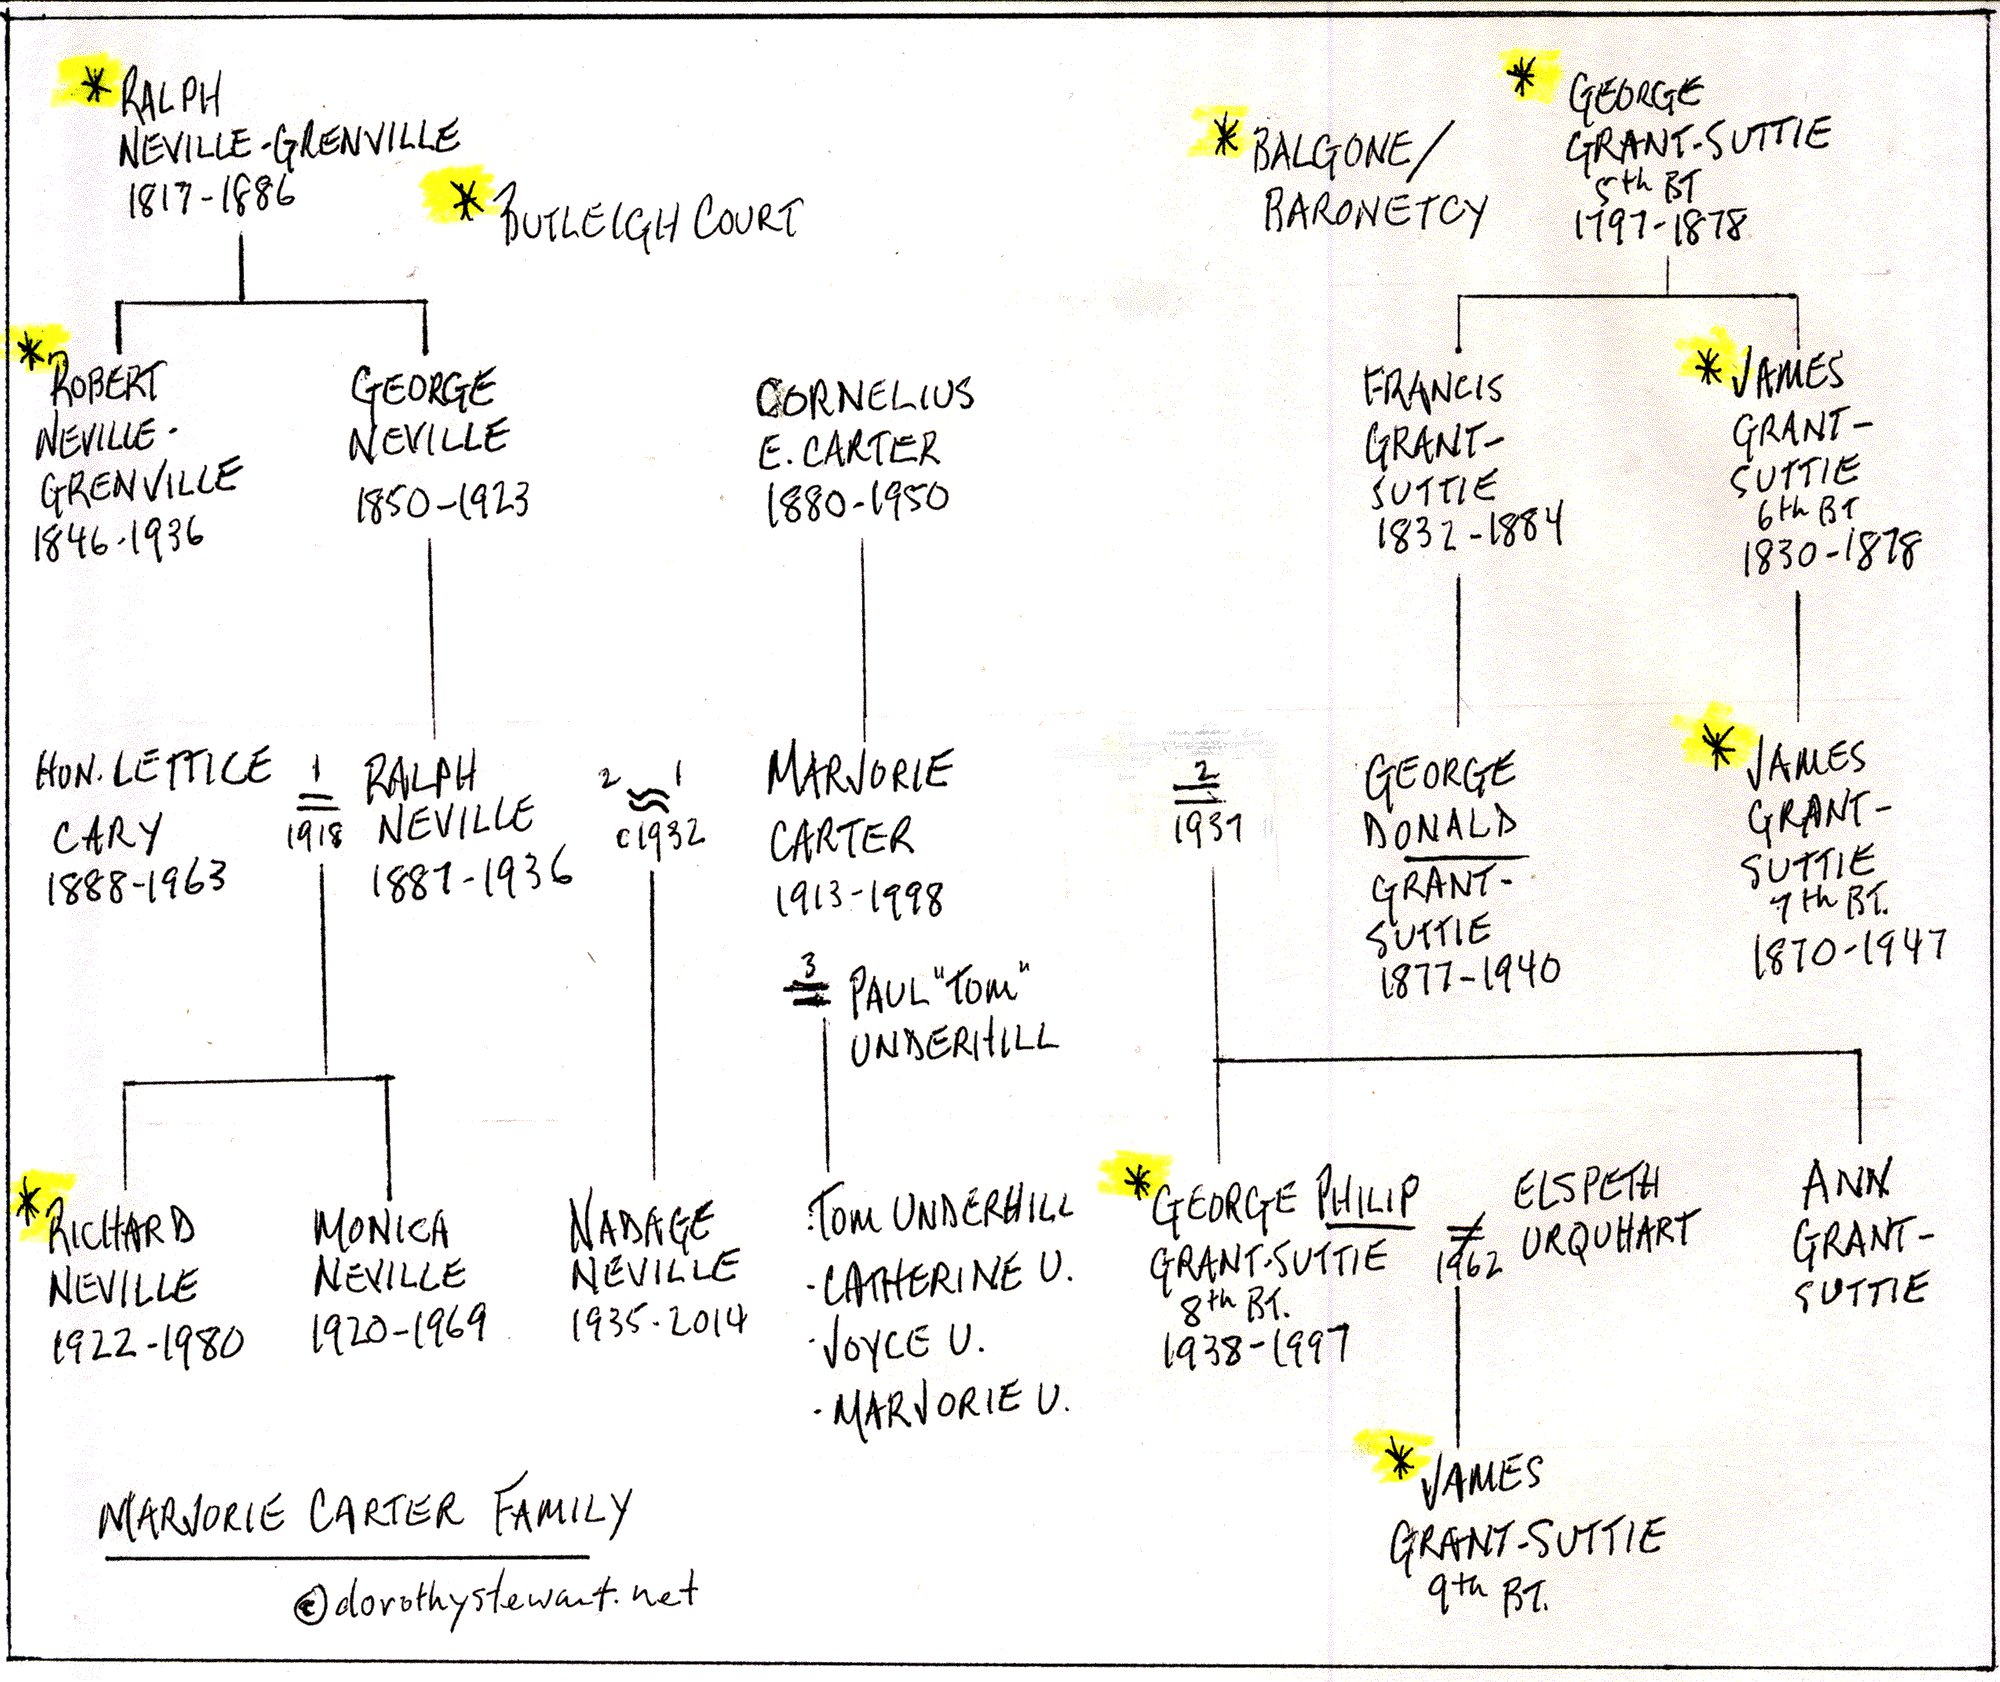 * RALPH
NEVILLE-GRENVILLE
1817-1886
* BUTLEIGH COURT
* BALGONE/
BARONETCY
* GEORGE
GRANT-SUTTIE
5th BT
1797-1878
* ROBERT
NEVILLE-
GRENVILLE
1846-1936
GEORGE
NEVILLE
1850-1923
CORNELIUS
E. CARTER
1880-1950
FRANCIS
GRANT-
SUTTIE
1832-1884
* JAMES
GRANT-
SUTTIE
6th BT
1830-1878
HON. LETTICE
CARY
1888-1963
1
=
1918
RALPH
NEVILLE
1887-1936
2 ≈ 1
c1932
MARJORIE
CARTER
1913-1998
3
= PAUL "TOM"
UNDERHILL
2
=
1937
GEORGE
DONALD
GRANT-
SUTTIE
1877-1940
* JAMES
GRANT-
SUTTIE
7th BT.
1870-1947
* RICHARD
NEVILLE
1922-1980
MONICA
NEVILLE
1920-1969
NADAGE
NEVILLE
1935-2014
·TOM UNDERHILL
·CATHERINE U.
·JOYCE U.
·MARJORIE U.
* GEORGE PHILIP
GRANT-SUTTIE
8th BT.
1938-1997
≠
1962
ELSPETH
URQUHART
ANN
GRANT-
SUTTIE
* JAMES
GRANT-SUTTIE
9th BT.
MARJORIE CARTER FAMILY
©dorothystewart.net